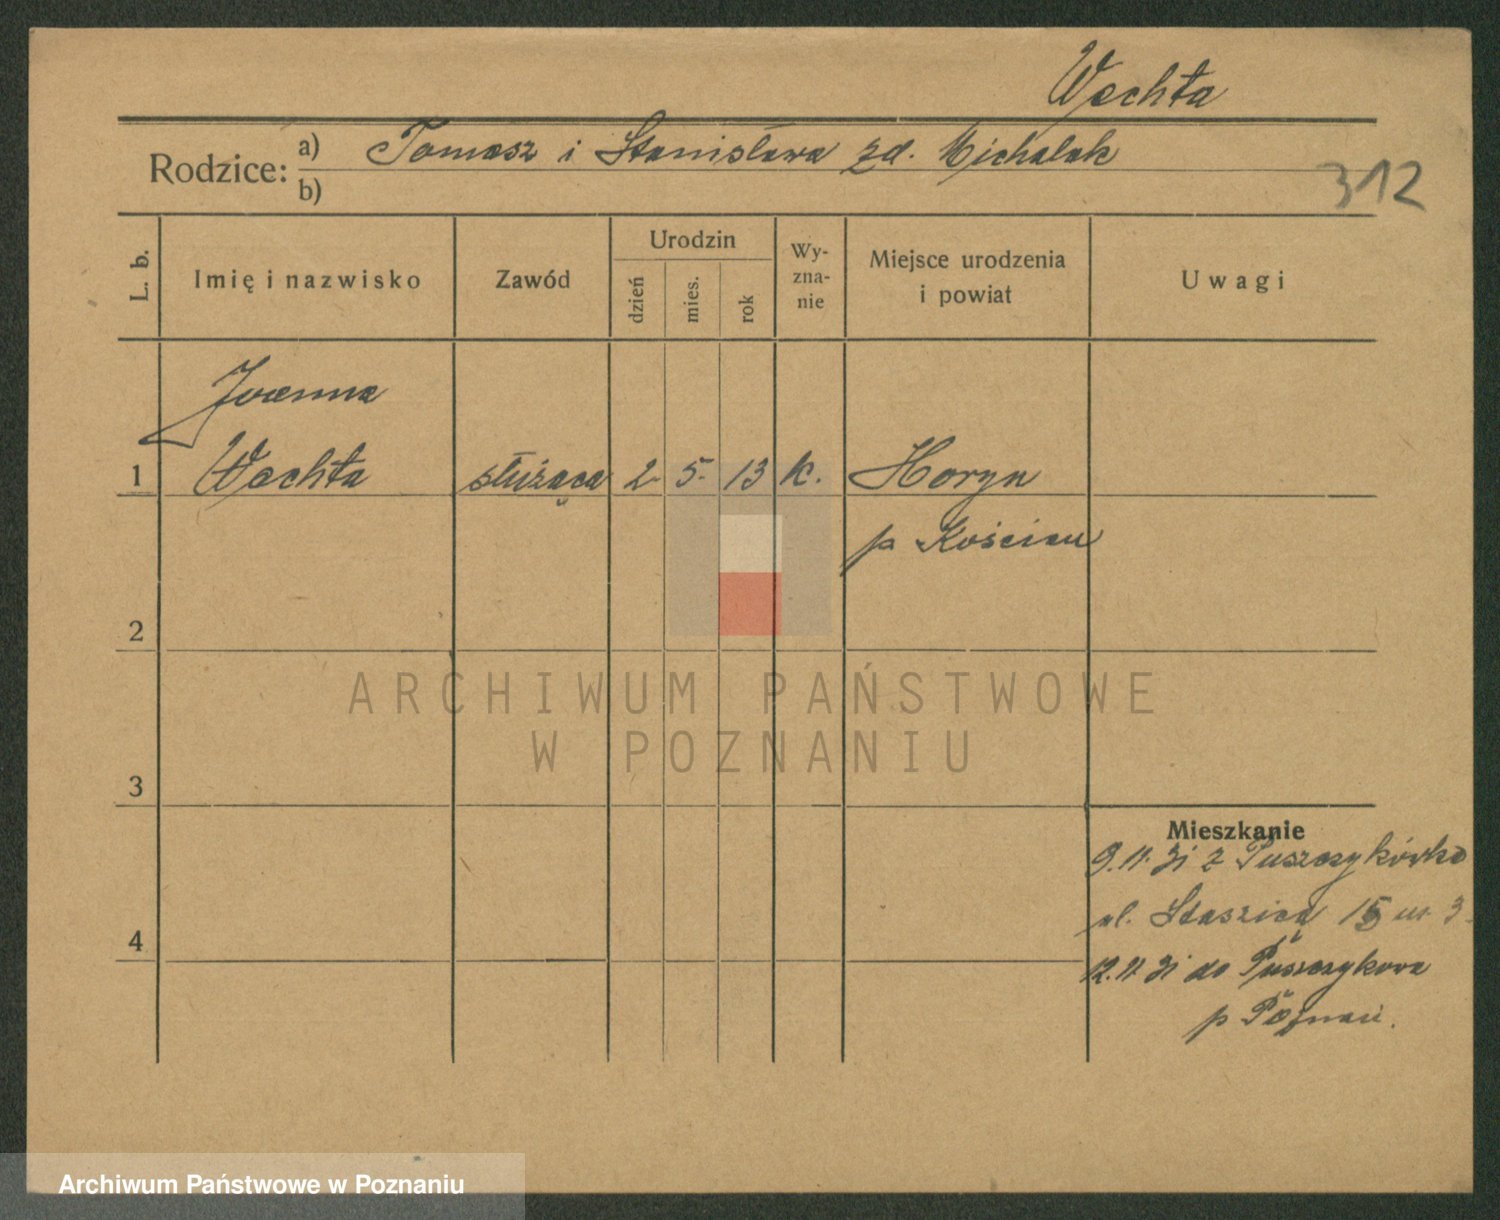 Wechta
Rodzice: a) Tomasz i Stanisława zd. Michalak
b)
312
L. b.
Imię i nazwisko
Zawód
Urodzin
dzień
mies.
rok
Wy-
zna-
nie
Miejsce urodzenia
i powiat
Uwagi
Joanna
1 Wechta służąca 2. 5. 13 k. Horyn
p Kościan
2
ARCHIWUM PAŃSTWOWE
W POZNANIU
3
Mieszkanie
9.11.31 z Puszczykówka
ul. Staszica 15 m 3.
4
12.11.31 do Puszczykowa
p Poznań.
Archiwum Państwowe w Poznaniu